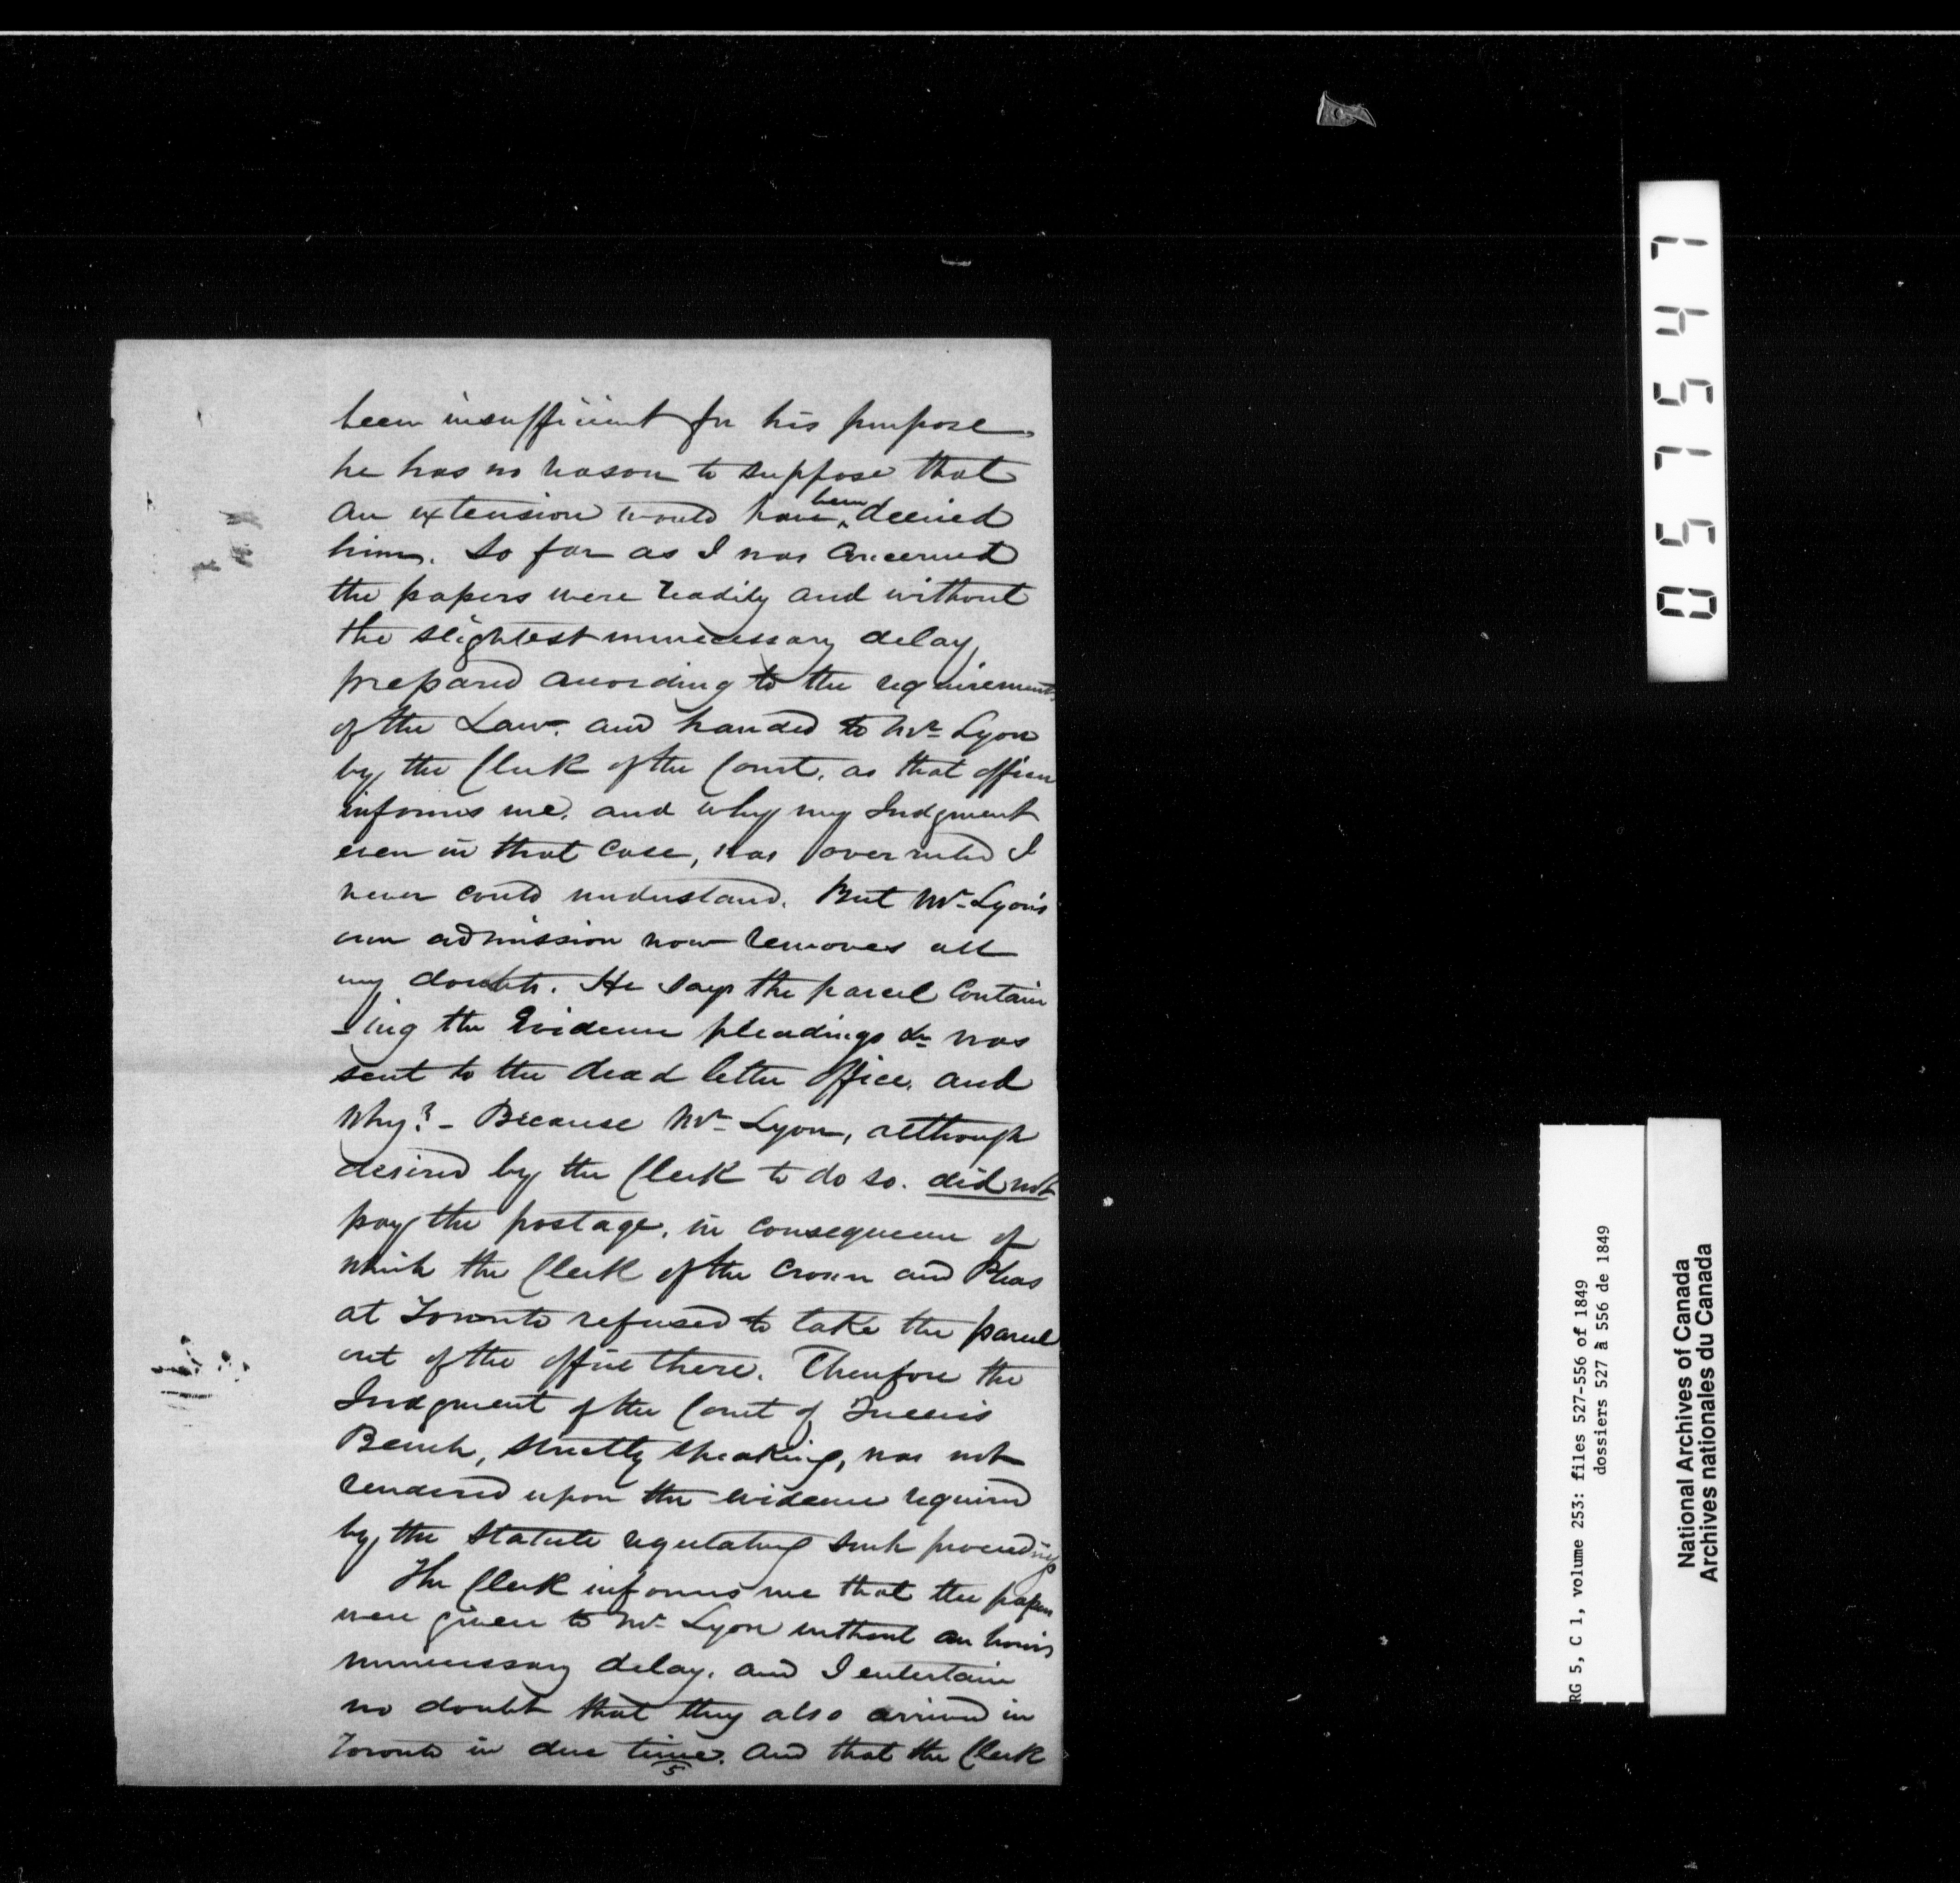 been insufficient for his purpose.
he has no reason to suppose that
an extension would have been denied
him. So far as I was concerned
the papers were readily and without
the slightest unnecessary delay,
prepared according to the requirements
of the Law. and handed to Mr Lyon
by the Clerk of the Court. as that officer
informs me. and why my Judgment
even in that case, was overruled I
never could understand. But Mr Lyon's
own admission now removes all
my doubts. He says the parcel contain
-ing the Evidence pleadings &c was
sent to the dead letter office. and
why? - Because Mr Lyon, although
desired by the Clerk to do so. did not
pay the postage. in consequence of
which the Clerk of the Crown and Pleas
at Toronto refused to take the parcel
out of the office there. Therefore the
Judgment of the Court of Queen's
Bench, strictly speaking, was not
rendered upon the evidence required
by the Statute regulating such proceedings
The Clerk informs me that the papers
were given to Mr Lyon without an hours
unnecessary delay. and I entertain
no doubt that they also arrived in
Toronto in due time. and that the Clerk
5
057547
RG 5, C 1, volume 253: files 527-556 of 1849
dossiers 527 à 556 de 1849
National Archives of Canada
Archives nationales du Canada